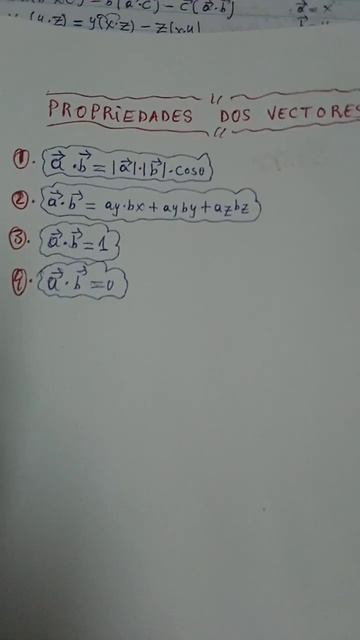 b(a⃗·c⃗) - c⃗(a⃗·b⃗)
(y·z) = y(x·z) - z(x·y)
a⃗ = x
PROPRIEDADES DOS VECTORES
1. a⃗·b⃗ = |a⃗|·|b⃗|·cosθ
2. a⃗·b⃗ = ay·bx + ayby + azbz
3. a⃗·b⃗ = 1
4. a⃗·b⃗ = 0